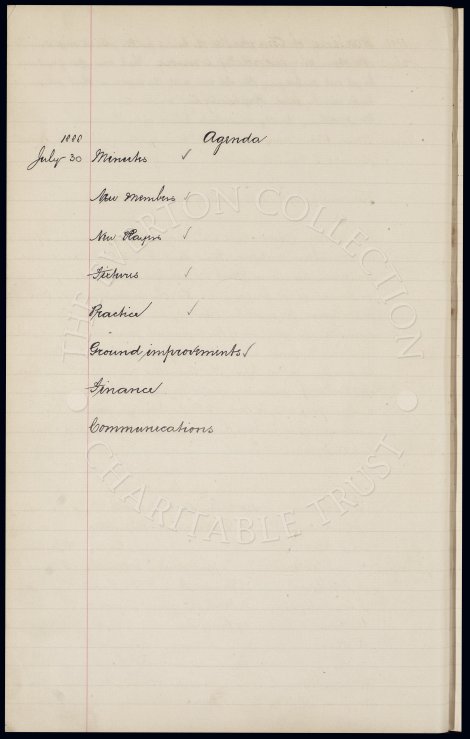 Agenda
July 30 Minutes ✓
New Members ✓
New Players ✓
Fixtures ✓
Practice ✓
Ground improvements ✓
Finance
Communications
THE EVERTON COLLECTION
CHARITABLE TRUST